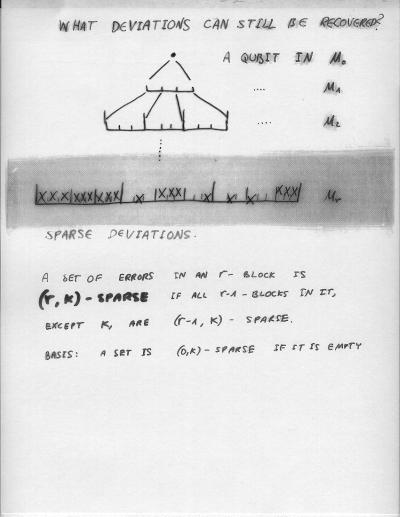 WHAT DEVIATIONS CAN STILL BE RECOVERED?
A QUBIT IN M₀
.... M₁
.... M₂
XXX XXX XXX X XXX X X X XXX Mᵣ
SPARSE DEVIATIONS.
A SET OF ERRORS IN AN r- BLOCK IS
(r, k) - SPARSE IF ALL r-1 - BLOCKS IN IT,
EXCEPT K, ARE (r-1, k) - SPARSE.
BASIS: A SET IS (0,k) - SPARSE IF IT IS EMPTY